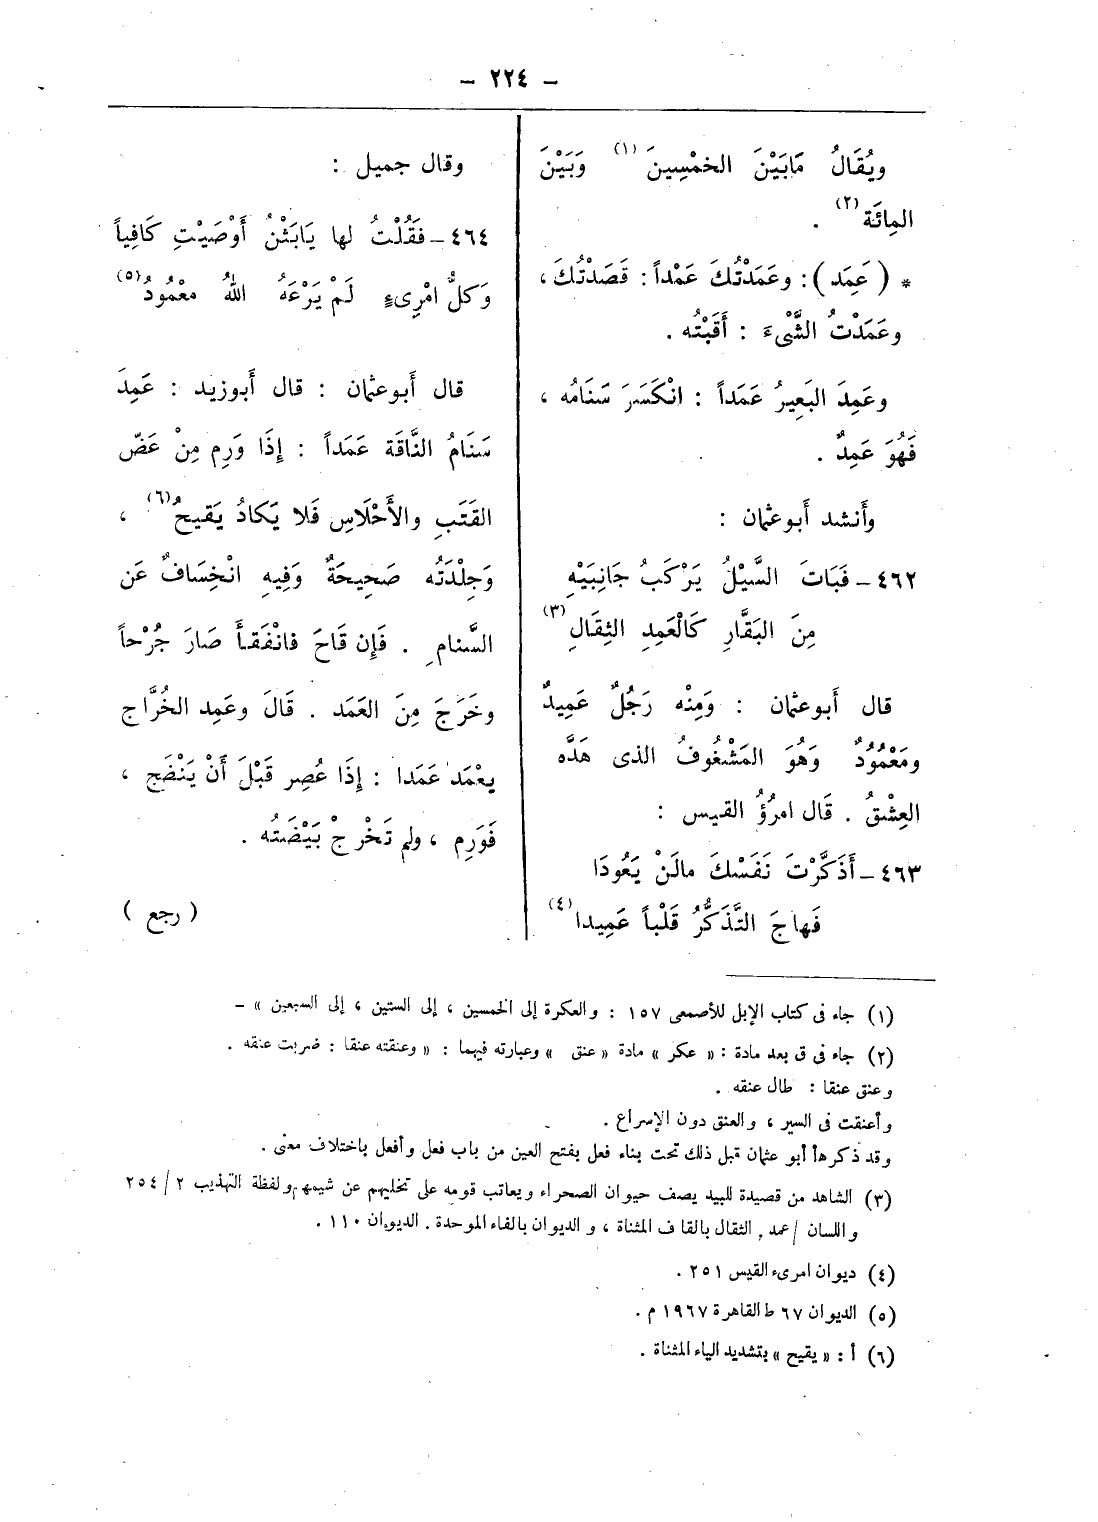 – ٢٢٤ –
ويُقَالُ مَابَيْنَ الخمْسِينَ (١) وَبَيْنَ
المِائَة (٢) .
* ( عَمِد ) : وعَمَدْتُكَ عَمْداً : قَصَدْتُكَ ،
وعَمَدْتُ الشَّىْءَ : أَقَبْتُه .
وعَمِدَ البَعِيرُ عَمَداً : انْكَسَرَ سَنَامُه ،
فَهُوَ عَمِدٌ .
وأَنشد أَبوعثمان :
٤٦٢ – فَبَاتَ السَّيْلُ يَرْكَبُ جَانِبَيْهِ
مِنَ البَقَّارِ كَالْعَمِدِ الثِقَالِ (٣)
قال أَبوعثمان : وَمِنْه رَجُلٌ عَمِيدٌ
ومَعْمُودٌ وَهُوَ المَشْغُوفُ الذى هَدَّه
العِشْقُ . قَال امرُؤُ القيس :
٤٦٣ – أَذَكَّرْتَ نَفَسْكَ مالَنْ يَعُودَا
فَهاجَ التَّذَكُّرُ قَلْباً عَمِيدا (٤)
وقال جميل :
٤٦٤ – فقُلْتُ لها يَابَثْنُ أَوْصَيْتِ كَافِياً
وَكلُّ امْرِىءٍ لَمْ يَرْعَهُ اللهُ معْمُودُ (٥)
قال أَبوعثمان : قال أَبوزيد : عَمِدَ
سَنَامُ النَّاقَة عَمَداً : إِذَا وَرِم مِنْ عَضّ
القَتَبِ والأَحْلَاسِ فَلا يَكادُ يَقيحُ (٦) ،
وَجِلْدَتُه صَحِيحَةٌ وَفِيهِ انْخِسَافٌ عَن
السَّنام . فَإِن قَاحَ فانْفَقأَ صَارَ جُرْحاً
وخَرَجَ مِنَ العَمَد . قَالَ وعَمِد الخُرَّاج
يعْمَد عَمَدا : إِذَا عُصِر قَبْلَ أَنْ يَنْضَج ،
فَوَرِم ، ولم تَخْرجْ بَيْضَتُه .
( رجع )
(١) جاء فى كتاب الإبل للأصمعى ١٥٧ : والعكرة إلى الخمسين ، إلى الستين ، إلى السبعين » –
(٢) جاء فى ق بعد مادة : « عكر » مادة « عنق » وعبارته فيهما : « وعنقته عنقا : ضربت عنقه .
وعنق عنقا : طال عنقه .
وأعنقت فى السير ، والعنق دون الإسراع .
وقد ذكرها أبو عثمان قبل ذلك تحت بناء فعل بفتح العين من باب فعل وأفعل باختلاف معنى .
(٣) الشاهد من قصيدة للبيد يصف حيوان الصحراء ويعاتب قومه على تخليهم عن شيمهم ولفظة التهذيب ٢/ ٢٥٤
واللسان / عمد , الثقال بالقاف المثناة ، والديوان بالفاء الموحدة . الديوان ١١٠ .
(٤) ديوان امرىء القيس ٢٥١ .
(٥) الديوان ٦٧ ط القاهرة ١٩٦٧ م .
(٦) أ : « يقيح » بتشديد الياء المثناة .